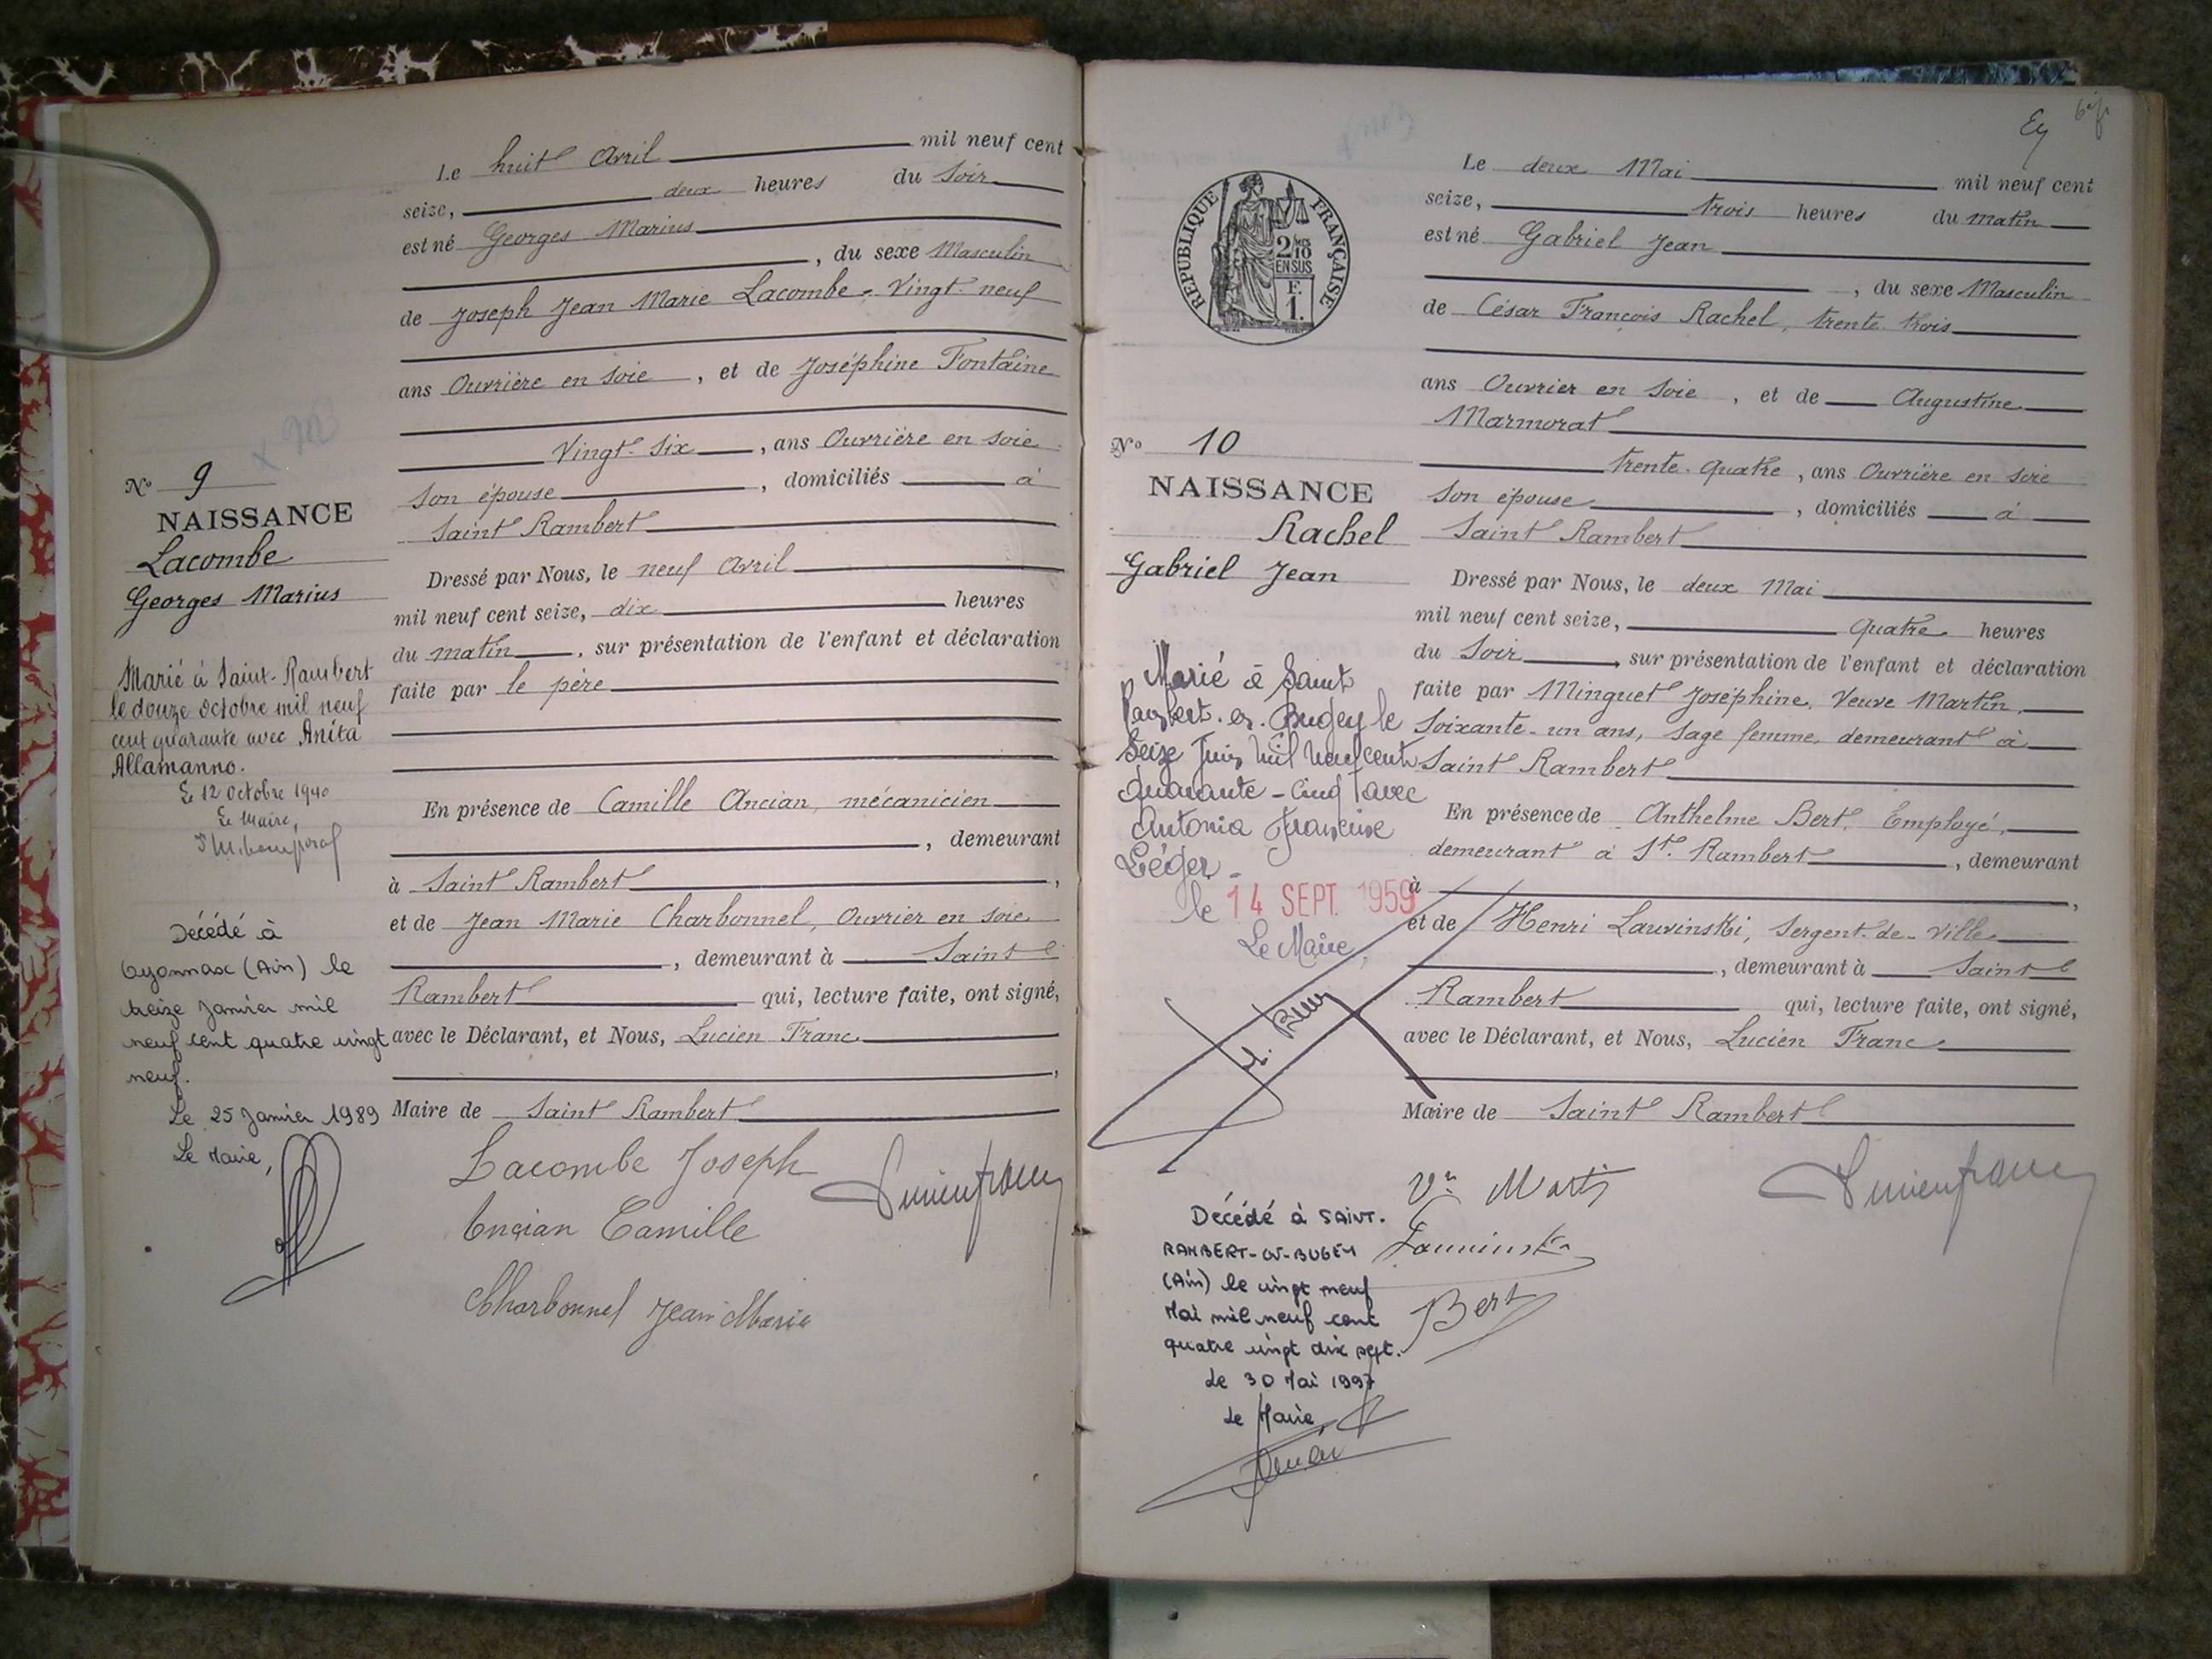 Le huit Avril mil neuf cent
seize, deux heures du Soir
est né Georges Marius
, du sexe Masculin
de Joseph Jean Marie Lacombe - Vingt-neuf
ans Ouvrière en soie, et de Joséphine Fontaine
Vingt-Six, ans Ouvrière en soie
Son épouse, domiciliés à
Saint Rambert
Dressé par Nous, le neuf Avril
mil neuf cent seize, dix heures
du matin, sur présentation de l'enfant et déclaration
faite par le père
En présence de Camille Ancian, mécanicien
, demeurant
à Saint Rambert,
et de Jean Marie Charbonnel, Ouvrier en soie
, demeurant à Saint
Rambert qui, lecture faite, ont signé,
avec le Déclarant, et Nous, Lucien Franc
,
Maire de Saint Rambert
Lacombe Joseph
Ancian Camille
Charbonnel Jean Marie
Lucien franc
No 9
NAISSANCE
Lacombe
Georges Marius
Marié à Saint-Rambert
le douze octobre mil neuf
cent quarante avec Anita
Allamanno.
Le 12 Octobre 1940
Le Maire,
Décédé à
Oyonnax (Ain) le
treize Janvier mil
neuf cent quatre vingt
neuf.
Le 25 Janvier 1989
Le Maire,
Ey
RÉPUBLIQUE FRANÇAISE
2/10
EN SUS
F.
1.
Le deux Mai mil neuf cent
seize, trois heures du matin
est né Gabriel Jean
, du sexe Masculin
de César François Rachel, trente trois
ans Ouvrier en Soie, et de Augustine
Marmorat
trente-quatre, ans Ouvrière en soie
Son épouse, domiciliés à
Saint Rambert
Dressé par Nous, le deux Mai
mil neuf cent seize, quatre heures
du Soir, sur présentation de l'enfant et déclaration
faite par Minguet Joséphine, Veuve Martin,
Soixante-un ans, Sage femme, demeurant à
Saint Rambert
En présence de Anthelme Bert, Employé,
demeurant à St. Rambert, demeurant
à ,
et de Henri Lauvinski, Sergent-de-Ville
, demeurant à Saint
Rambert qui, lecture faite, ont signé,
avec le Déclarant, et Nous, Lucien Franc
Maire de Saint Rambert
Vve Martin
Lauvinski
Bert
Lucien franc
No 10
NAISSANCE
Rachel
Gabriel Jean
Marié à Saint
Rambert-en-Bugey le
Seize Juin mil neuf cent
Quarante-cinq avec
Antonia Françoise
Léger -
le 14 SEPT. 1959
Le Maire,
Décédé à SAINT-
RAMBERT-EN-BUGEY
(Ain) le vingt neuf
Mai mil neuf cent
quatre vingt dix sept.
Le 30 Mai 1997
Le Maire,